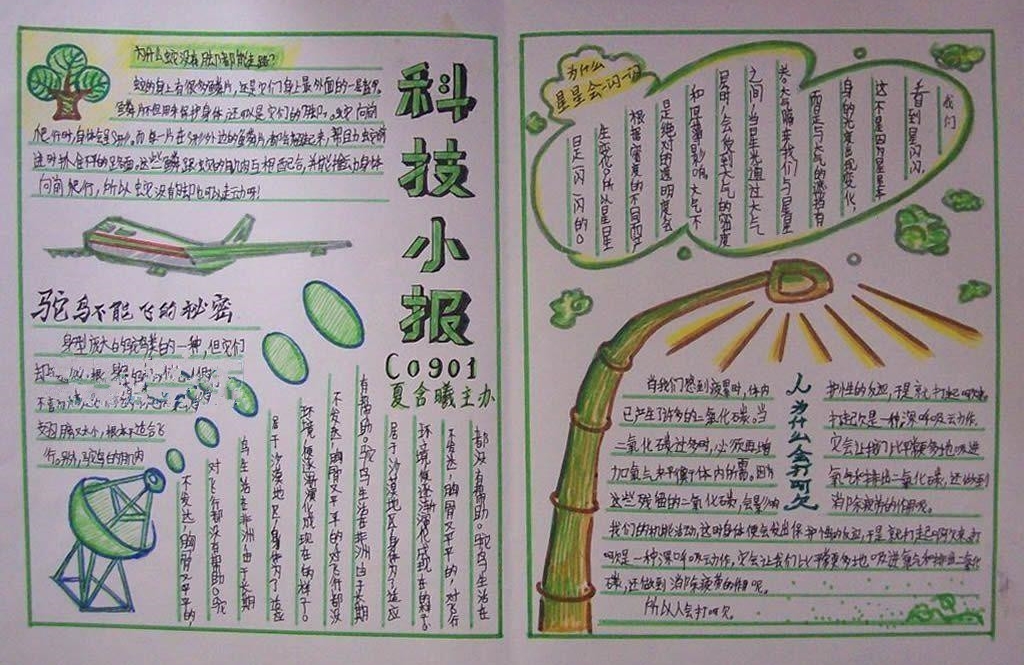 为什么蛇没有脚都能走路?
蛇的身上有很多鳞片,这是它们身上最外面的一层盔甲。
鳞片不但用来保护身体,还可以是它们的脚。蛇向前
爬行时,身体会呈S形。而每一片在S形外边的鳞片都会翘起来,帮助蛇前
进时抓住不平的路面。这些鳞片跟蛇的肌肉互相配合,并能推动身体
向前爬行,所以蛇没有脚也可以走动呀!
科技小报
C0901
夏含曦主办
驼鸟不能飞的秘密
身型庞大的驼鸟是鸟的一种,但它们
却
不喜
翅膀又太小,根本不适合飞
行。另外,驼鸟的肌肉
不发达,胸骨又平平的,
对飞行都没有帮助。驼
鸟生活在非洲,由于长期
居于沙漠地瓦,身体为了适应
环境,便逐渐演化成现在的样子。
不发达,胸骨又平平的,对飞行都没
有帮助。驼鸟生活在非洲,由于长期
居于沙漠地瓦,身体为了适应
环境,便逐渐演化成现在的样子。
不发达,胸骨又平平的,对飞行
都没有帮助。驼鸟生活在
为什么
星星会一闪一闪
我们
看到星闪闪,
这不是因为星星本
身的光度出现变化,
而是与大气的遮挡有
关。大气隔在我们与星星
之间,当星光通过大气
层时,会受到大气的密度
和厚薄影响。大气不
是绝对的透明,它会
根据密度的不同而产
生变化。所以星星
一闪一闪的。
人为什么会打呵欠
当我们感到疲累时,体内
已产生了许多的二氧化碳。当
二氧化碳过多时,必须再增
加氧气来平衡体内所需。因为
这些残留的二氧化碳,会影响
我们的机能活动,这时身体便会发出保护性的反应,于是就打起呵欠来。打
呵欠是一种深呼吸动作,它会让我们比平常更多地吸进氧气和排出二氧化
碳,还做到消除疲劳的作用呢。
所以人会打呵欠
护性的反应,于是就打起呵欠来。
打起欠是一种深呼吸动作,
它会让我们比平常更多地吸进
氧气和排出二氧化碳,还做到
消除疲劳的作用呢。